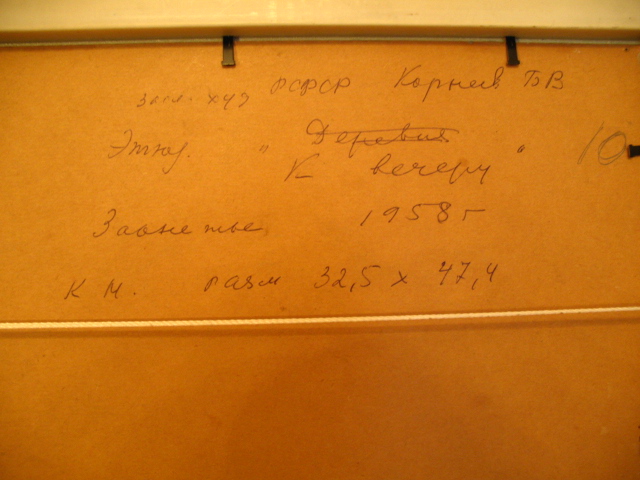 засл. худ РСФСР Корнеев Б В
Этюд. " Деревня
К вечеру " 10
Заонежье 1958 г
К М. разм 32,5 х 47,4